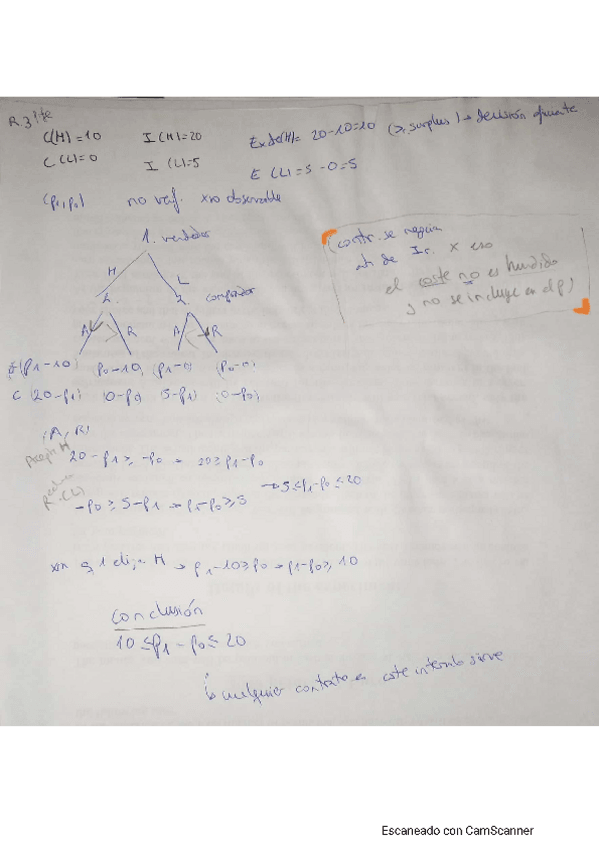 C(H)=10 I(H)=20 Excde(H)= 20-10=10 (> surplus) → decisión eficiente
C(L)=0 I(L)=5 E(L)=5-0=5
(p1,p0) no verif. xo observable
1. vendedor
(contr. se negocia
H L
de Ir. x eso
2. 2. comprador
el coste no es hundido
y no se incluye en el p)
A R A R
(p1-10) (p0-10) (p1-0) (p0-0)
C (20-p1) (0-p0) (5-p1) (0-p0)
(A,R)
Acepta H 20-p1 ≥ -p0 → 20 ≥ p1-p0
→ 5 ≤ p1-p0 ≤ 20
R (L) -p0 ≥ 5-p1 → p1-p0 ≥ 5
1 elija H → p1-10 ≥ p0 → p1-p0 ≥ 10
Conclusión
10 ≤ p1-p0 ≤ 20
cualquier contrato en este intervalo sirve
Escaneado con CamScanner